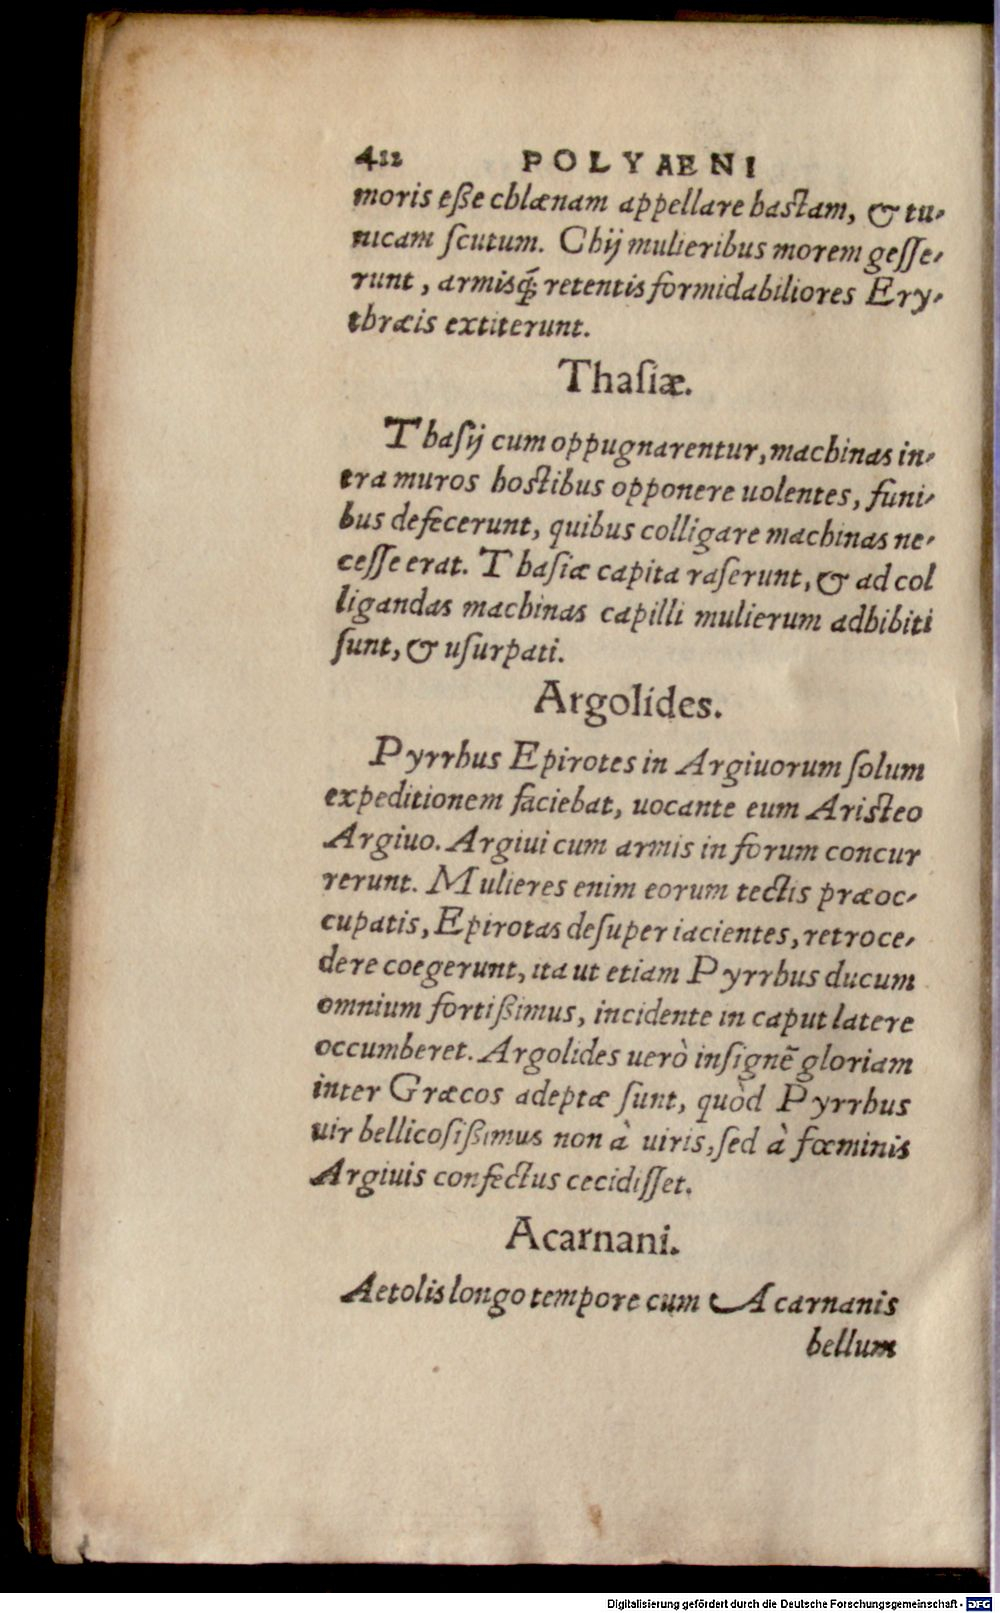 412 POLYAENI
moris eße chlænam appellare hastam, & tu-
nicam ſcutum. Chij mulieribus morem geſſe-
runt, armisq́ꝫ retentis formidabiliores Ery-
thræis extiterunt.
Thaſiæ.
Thaſij cum oppugnarentur, machinas in-
tra muros hostibus opponere uolentes, funi-
bus defecerunt, quibus colligare machinas ne-
ceſſe erat. Thaſiæ capita raſerunt, & ad col
ligandas machinas capilli mulierum adhibiti
ſunt, & uſurpati.
Argolides.
Pyrrhus Epirotes in Argiuorum ſolum
expeditionem faciebat, uocante eum Aristeo
Argiuo. Argiui cum armis in forum concur
rerunt. Mulieres enim eorum tectis præoc-
cupatis, Epirotas deſuper iacientes, retroce-
dere coegerunt, ita ut etiam Pyrrhus ducum
omnium fortißimus, incidente in caput latere
occumberet. Argolides uerò inſignē gloriam
inter Græcos adeptæ ſunt, quòd Pyrrhus
uir bellicoſißimus non à uiris, ſed à fœminis
Argiuis confectus cecidiſſet.
Acarnani.
Aetolis longo tempore cum Acarnanis
bellum
Digitalisierung gefördert durch die Deutsche Forschungsgemeinschaft - DFG